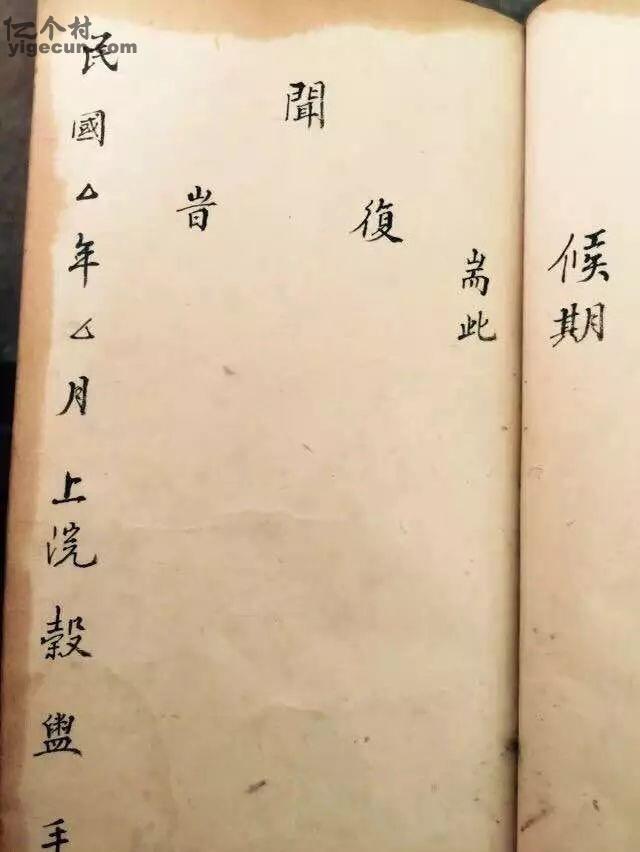 亿个村
yigecun.com
候期
耑此
復
聞
旹
民國△年△月上浣穀盥手